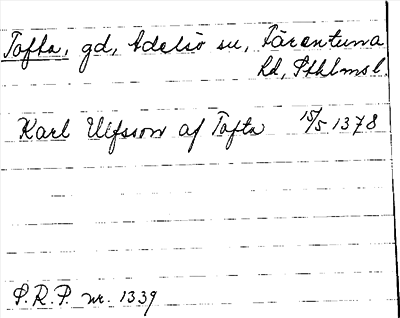 Tofta, gd, Adelsö sn, Färentuna
hd, Sthlms l.
Karl Ulfsson af Tofta 15/5 1378
S.R.P. nr. 1339